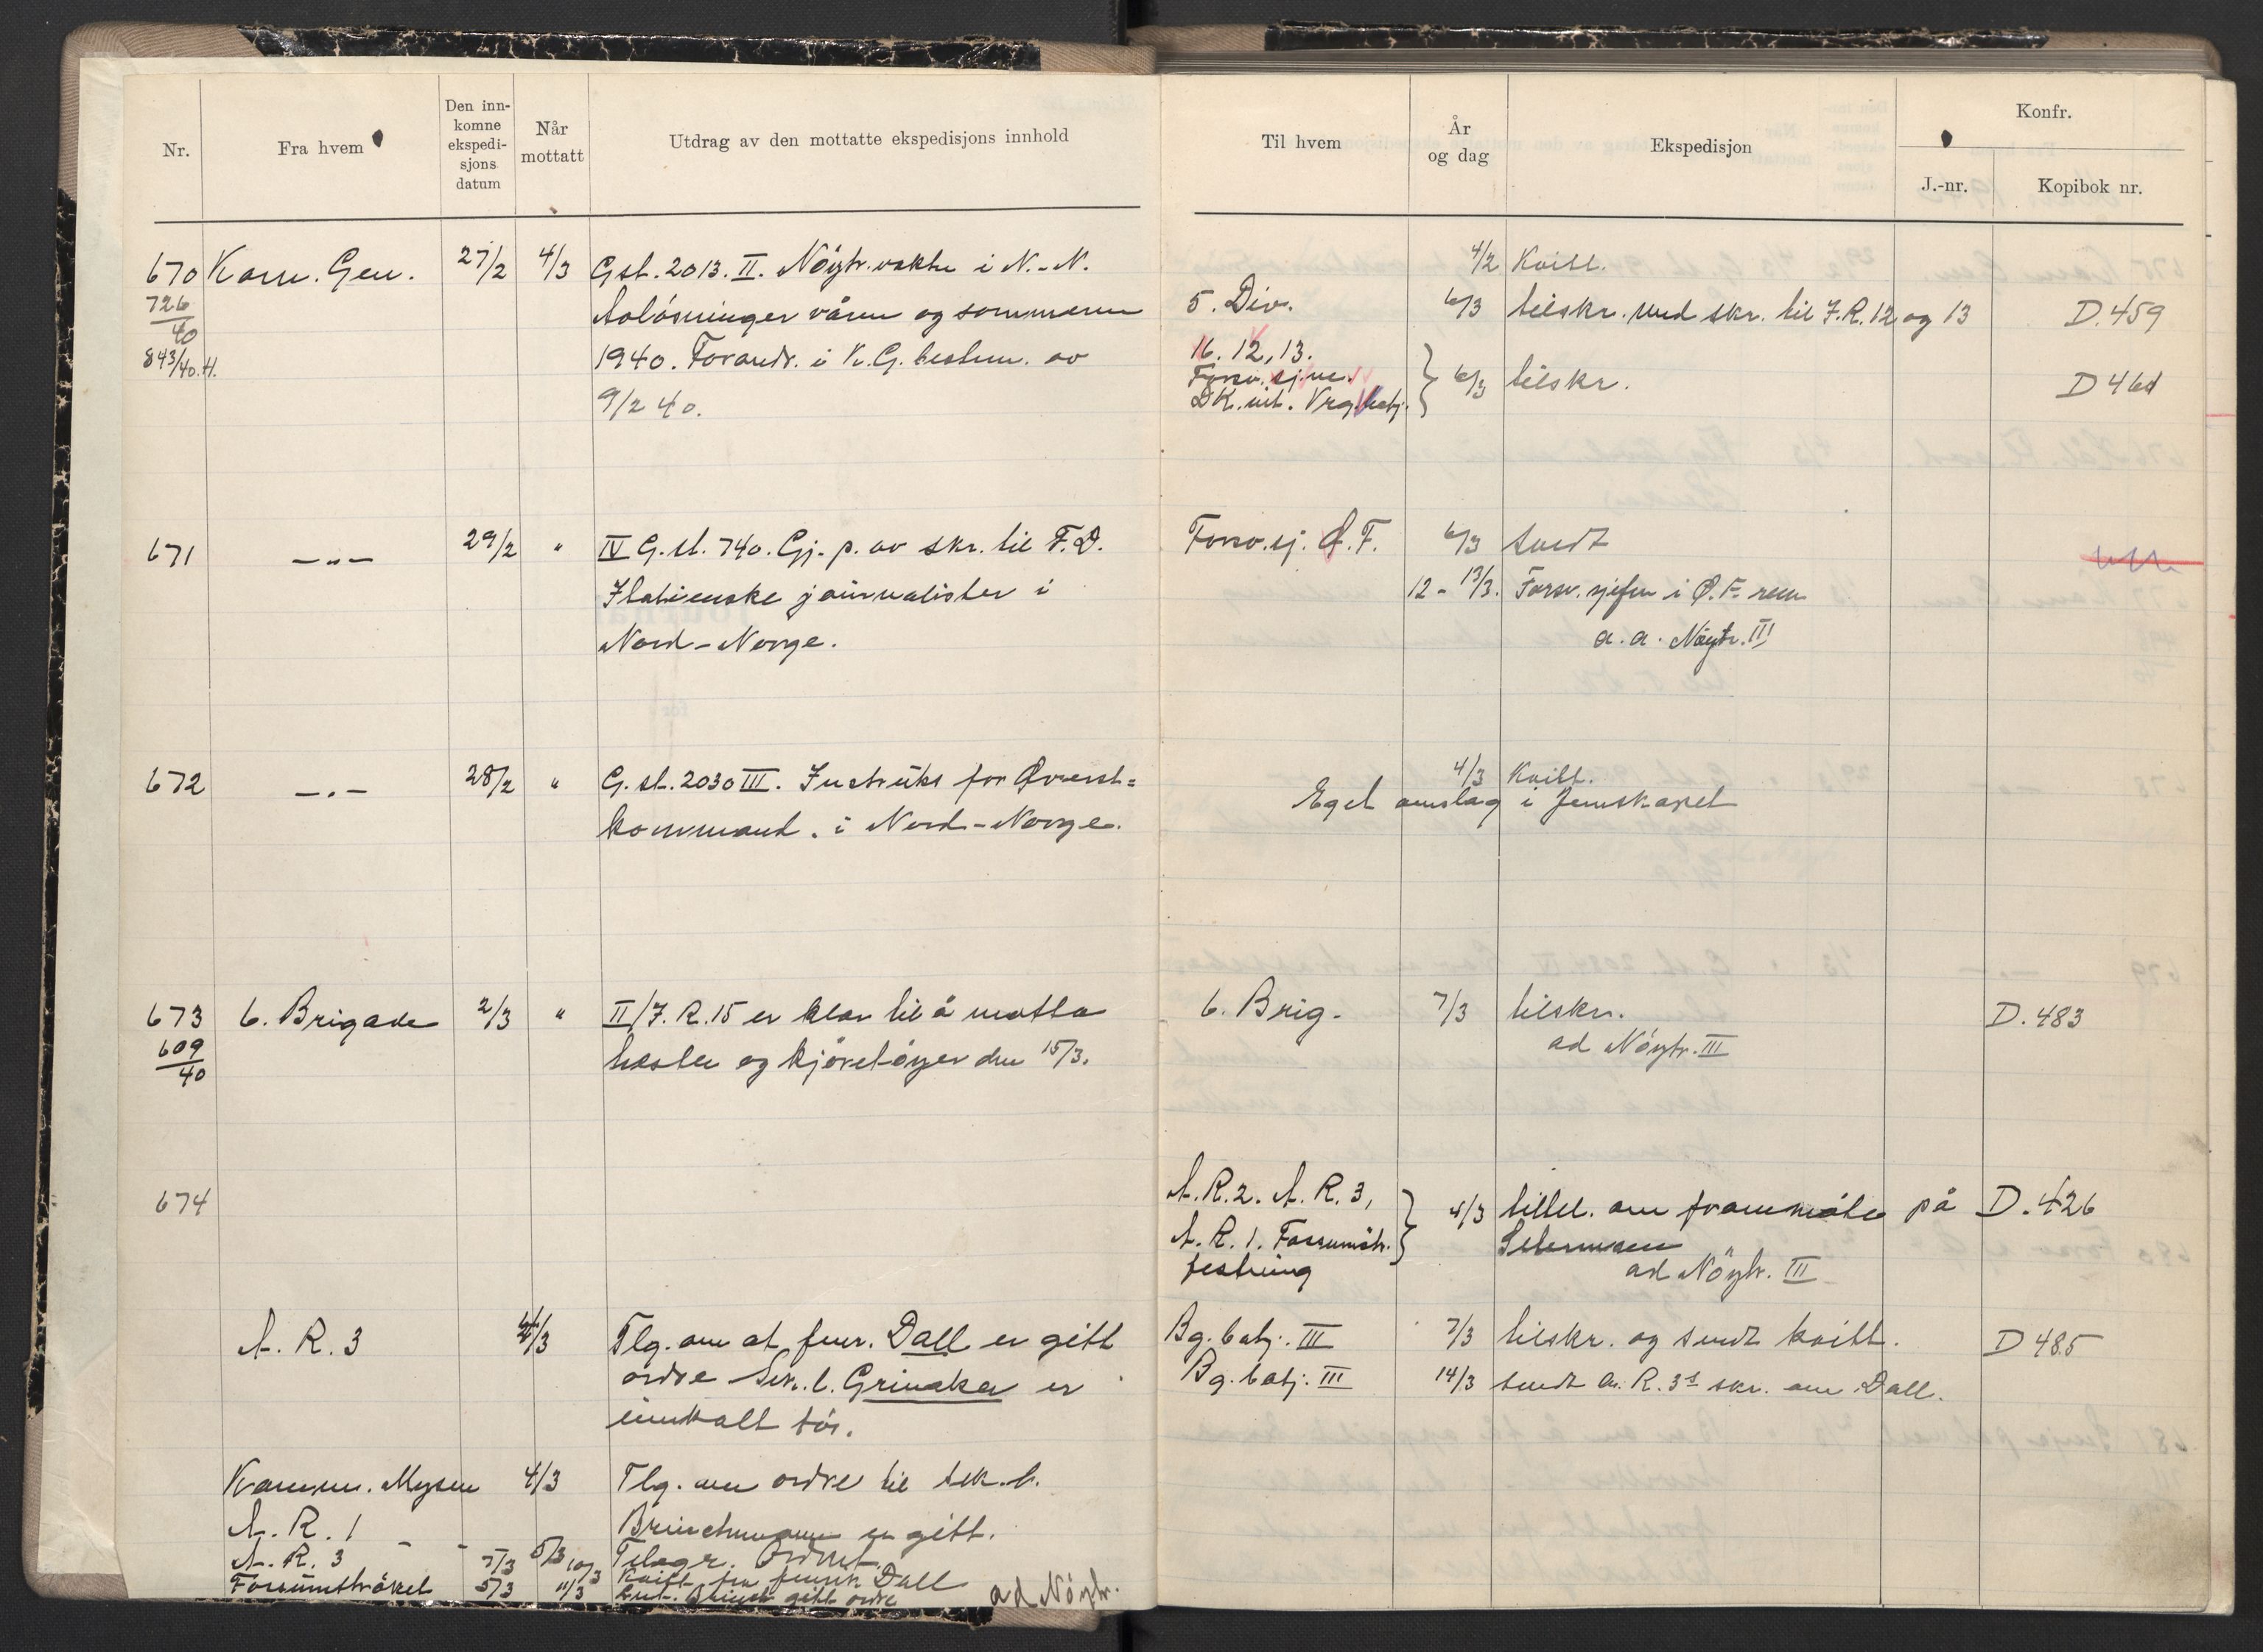 Nr.
Fra hvem
Den inn-
komne
ekspedi-
sjons
datum
Når
mottatt
Utdrag av den mottatte ekspedisjons innhold
670 Kom. Gen. 27/2 4/3 Gst. 2013. II. Nöytr.vakte i N.-N.
726/40 Avlösninger våren og sommeren
843/40.H. 1940. Forandr. i K.G. bestem. av
9/2 40.
671 —"— 29/2 " IV G.st. 740. Gj.p. av skr. til F.D.
Italienske journalister i
Nord-Norge.
672 —"— 28/2 " G.st. 2030 III. Instruks for Överst=
kommand. i Nord-Norge.
673 6. Brigade 2/3 " II/I.R.15 er klar til å motta
609/40 hester og kjöretöyer den 15/3.
674
A. R. 3 4/3 Tlg. om at fenr. Dall er gitt
ordre Sek.l. Grinaker er
innkalt för.
Komm. Mysen 4/3 Tlg. om ordre til sek.l.
A. R. 1 - - Brinchmann er gitt.
A. R. 3 7/3 10/3 Kvitt. fra fenrik Dall
Fossumströket 5/3 11/3 gitt ordre
ad Nöytr.
Til hvem
År
og dag
Ekspedisjon
Konfr.
J.-nr.
Kopibok nr.
4/2 Kvitt.
5. Div. 6/3 tilskr. med skr. til I.R. 12 og 13 D.459
16. 12, 13.
Forsv.sj. 6/3 tilskr. D 461
Forsv.sj. Ö.F. 6/3 Sendt
12 - 13/3. Forsv.sjefen i Ö.F. rem
a.a. Nöytr. III
4/3 Kvitt.
Eget omslag i Jernskapet
6. Brig. 7/3 tilskr. D.483
ad Nöytr. III
A.R.2. A.R.3, 4/3 tillel. om frammöte på D.426
A.R.1. Fossumstr. Setermoen
festning ad Nöytr. III
Bg.batj. III 7/3 tilskr. og sendt kvitt. D 485
Bg.batj. III 14/3 sendt A.R.3s skr. om Dall.